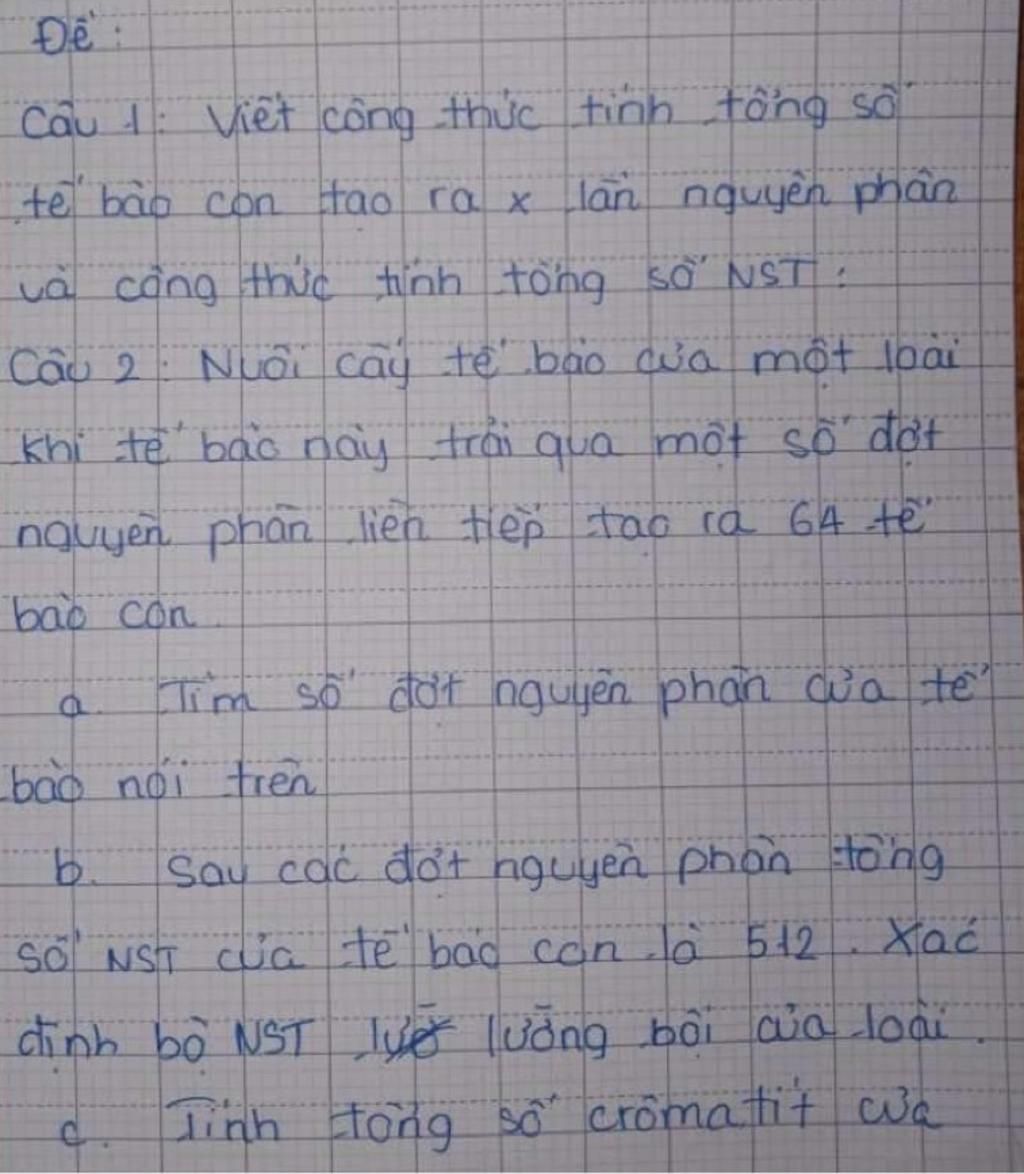 Đề :
Câu 1 : Viết công thức tính tổng số
tế bào con tạo ra x lần nguyên phân
và công thức tính tổng số NST :
Câu 2 : Nuôi cấy tế bào của một loài
khi tế bào này trải qua một số đợt
nguyên phân liên tiếp tạo ra 64 tế
bào con
a. Tìm số đợt nguyên phân của tế
bào nói trên
b. Sau các đợt nguyên phân tổng
số NST của tế bào con là 512. Xác
định bộ NST lưỡng bội của loài.
c. Tính tổng số crômatit của